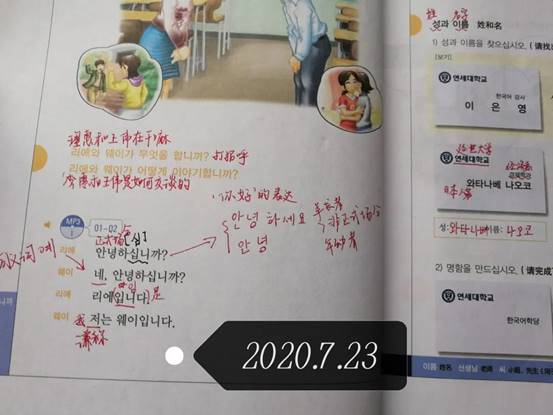 理惠和王伟在干嘛
리애와 웨이가 무엇을 합니까? 打招呼
리애와 웨이가 어떻게 이야기합니까?
李惠和王伟是如何交谈的
'你好'的表达
MP3
01-02
正式场合
리애 안녕하십니까?
안녕하세요
안녕
非正式场合
年幼者
웨이 네, 안녕하십니까?
리애 리애입니다. 是
웨이 我 저는 웨이입니다.
谦称
2020.7.23
姓 名字
성과 이름 姓和名
1) 성과 이름을 찾으십시오. (请找
[보기]
연세대학교
한국어 강사
이 은 영
延世大学
연세대학교
와타나베 나오코
日本人
성: 와타나베 이름: 나오코
2) 명함을 만드십시오. (请完成
연세대학교
한국어학당
이름 姓名 선생님 老师 씨 小姐, 先生